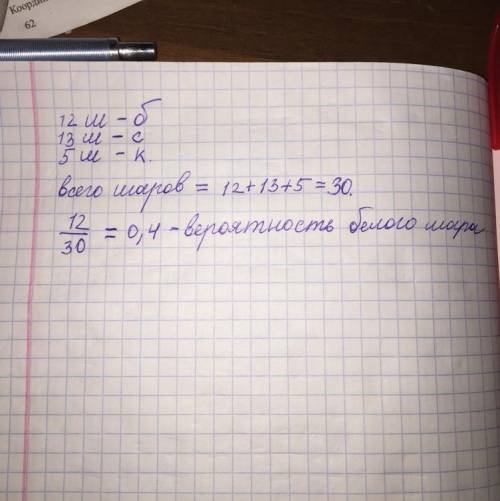 Коорди
62
12 ш – б
13 ш – с
5 ш – к.
всего шаров = 12+13+5=30.
12/30 = 0,4 – вероятность белого шара